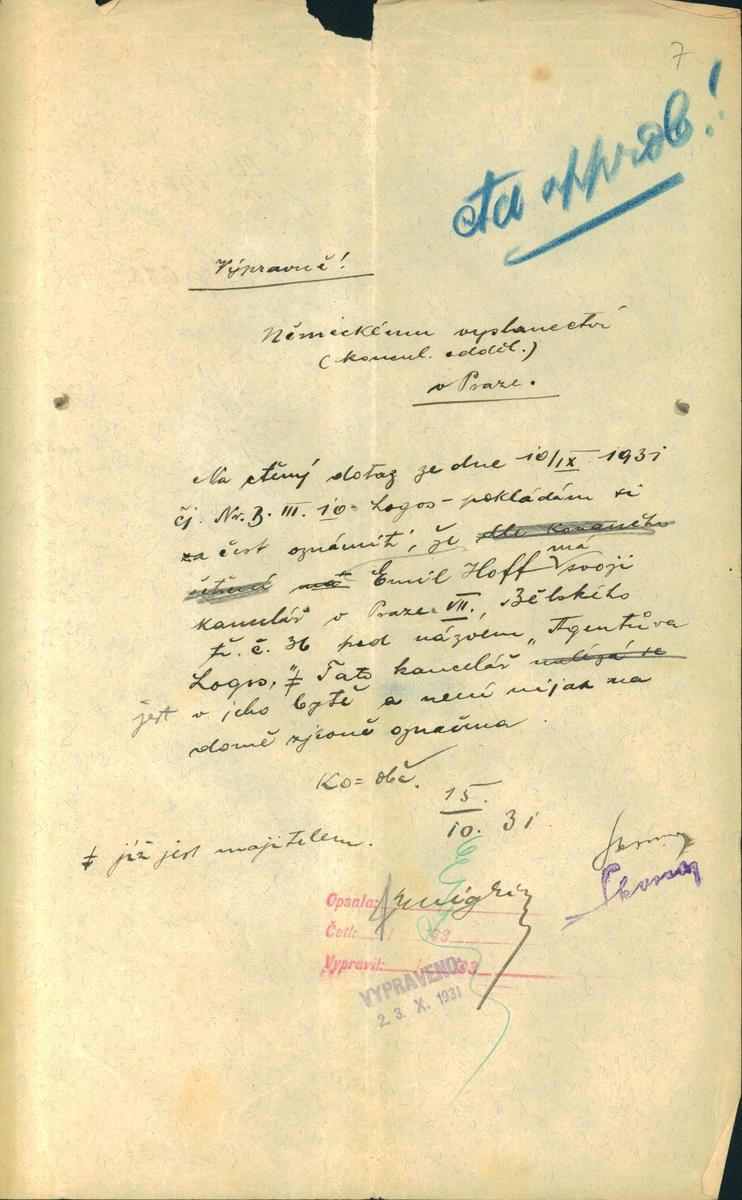 7
Ad approb!
Výpravně!
Německému vyslanectví
(konsul. odděl.)
v Praze.
Na ctěný dotaz ze dne 10/IX. 1931
čj. Nr. B. III. 10 - Logos - pokládám si
za čest oznámiti, že dle konaného
šetření má Emil Hoff má svoji
kancelář v Praze VII., Bělského
tř. č. 36 pod názvem „Agentura
Logos," ‡ Tato kancelář nalézá se
jest v jeho bytě a není nijak na
domě zjevně označena.
Ko= obč.
15.
10. 31
‡ již jest majitelem.
Opsala:
Četl: 193
Vypravil: 193
VYPRAVENO:
23. X. 1931